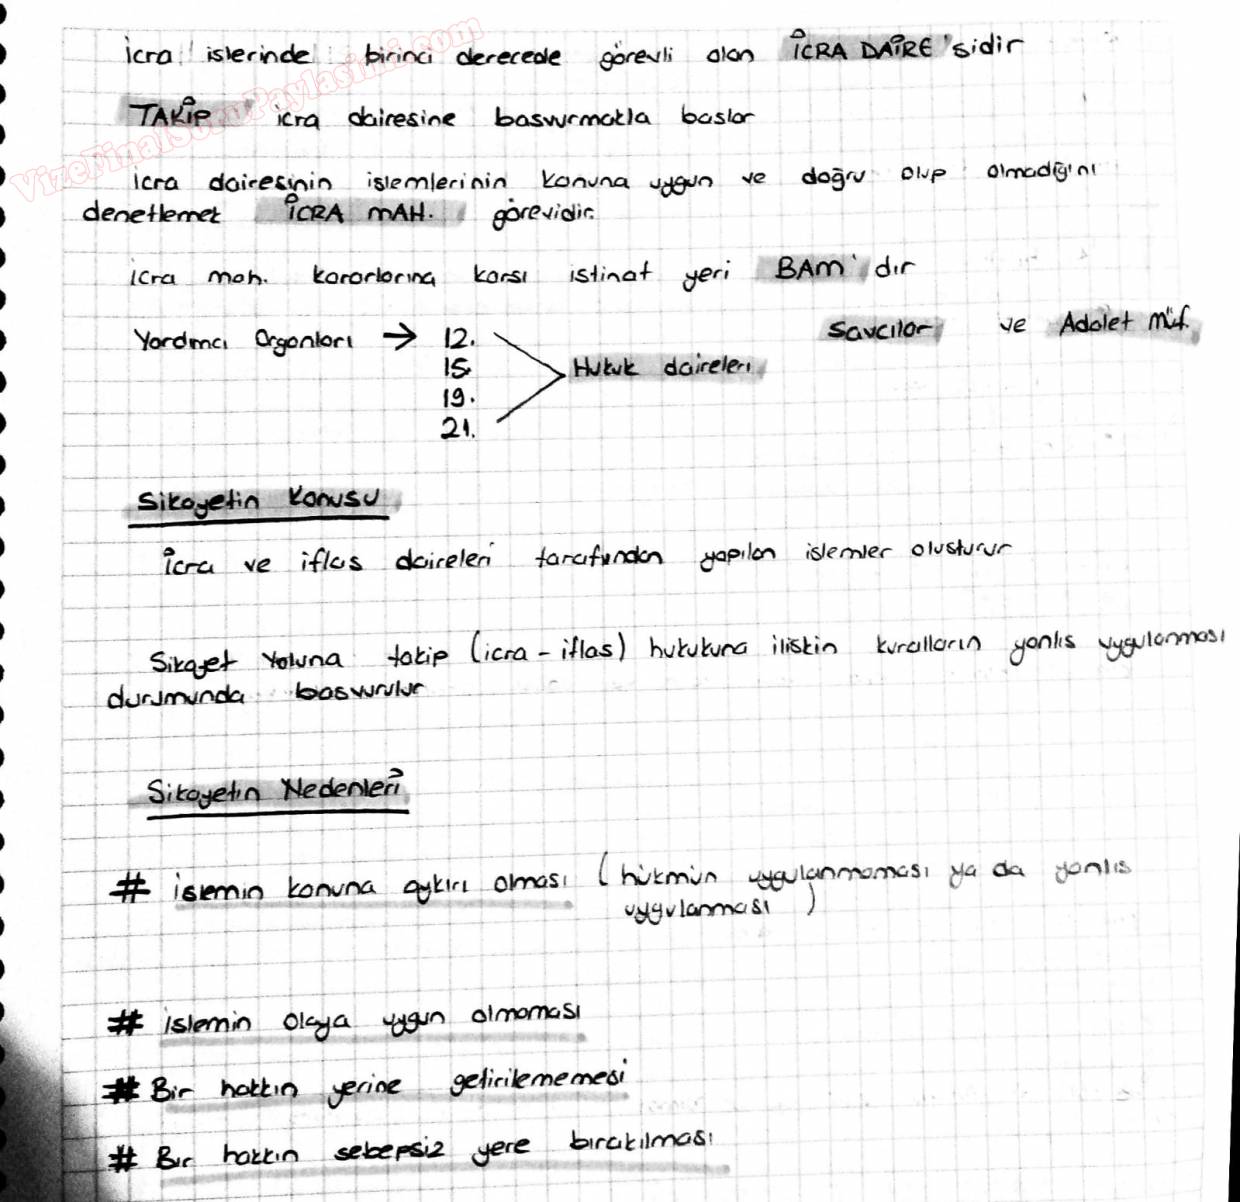 icra işlerinde birinci derecede görevli olan İCRA DAİRE'sidir
TAKİP icra dairesine basvurmakla baslar
icra dairesinin işlemlerinin kanuna uygun ve doğru olup olmadığını
denetlemek İCRA MAH. görevidir.
icra mah. kararlarına karsı istinaf yeri BAM'dır
Yardımcı Organları → 12. Savcılar ve Adalet Müf.
15. Hukuk daireleri
19.
21.
Sikayetin Konusu
İcra ve iflas daireleri tarafından yapılan islemler olusturur
Sikayet Yoluna takip (icra - iflas) hukukuna iliskin kuralların yanlıs uygulanması
durumunda basvurulur
Sikayetin Nedenleri
# islemin kanuna aykırı olması (hükmün uygulanmaması ya da yanlıs
uygulanması)
# islemin olaya uygun olmaması
# Bir hakkın yerine getirilememesi
# Bir hakkın sebepsiz yere bırakılması
VizeFinalSoruPaylasimi.com